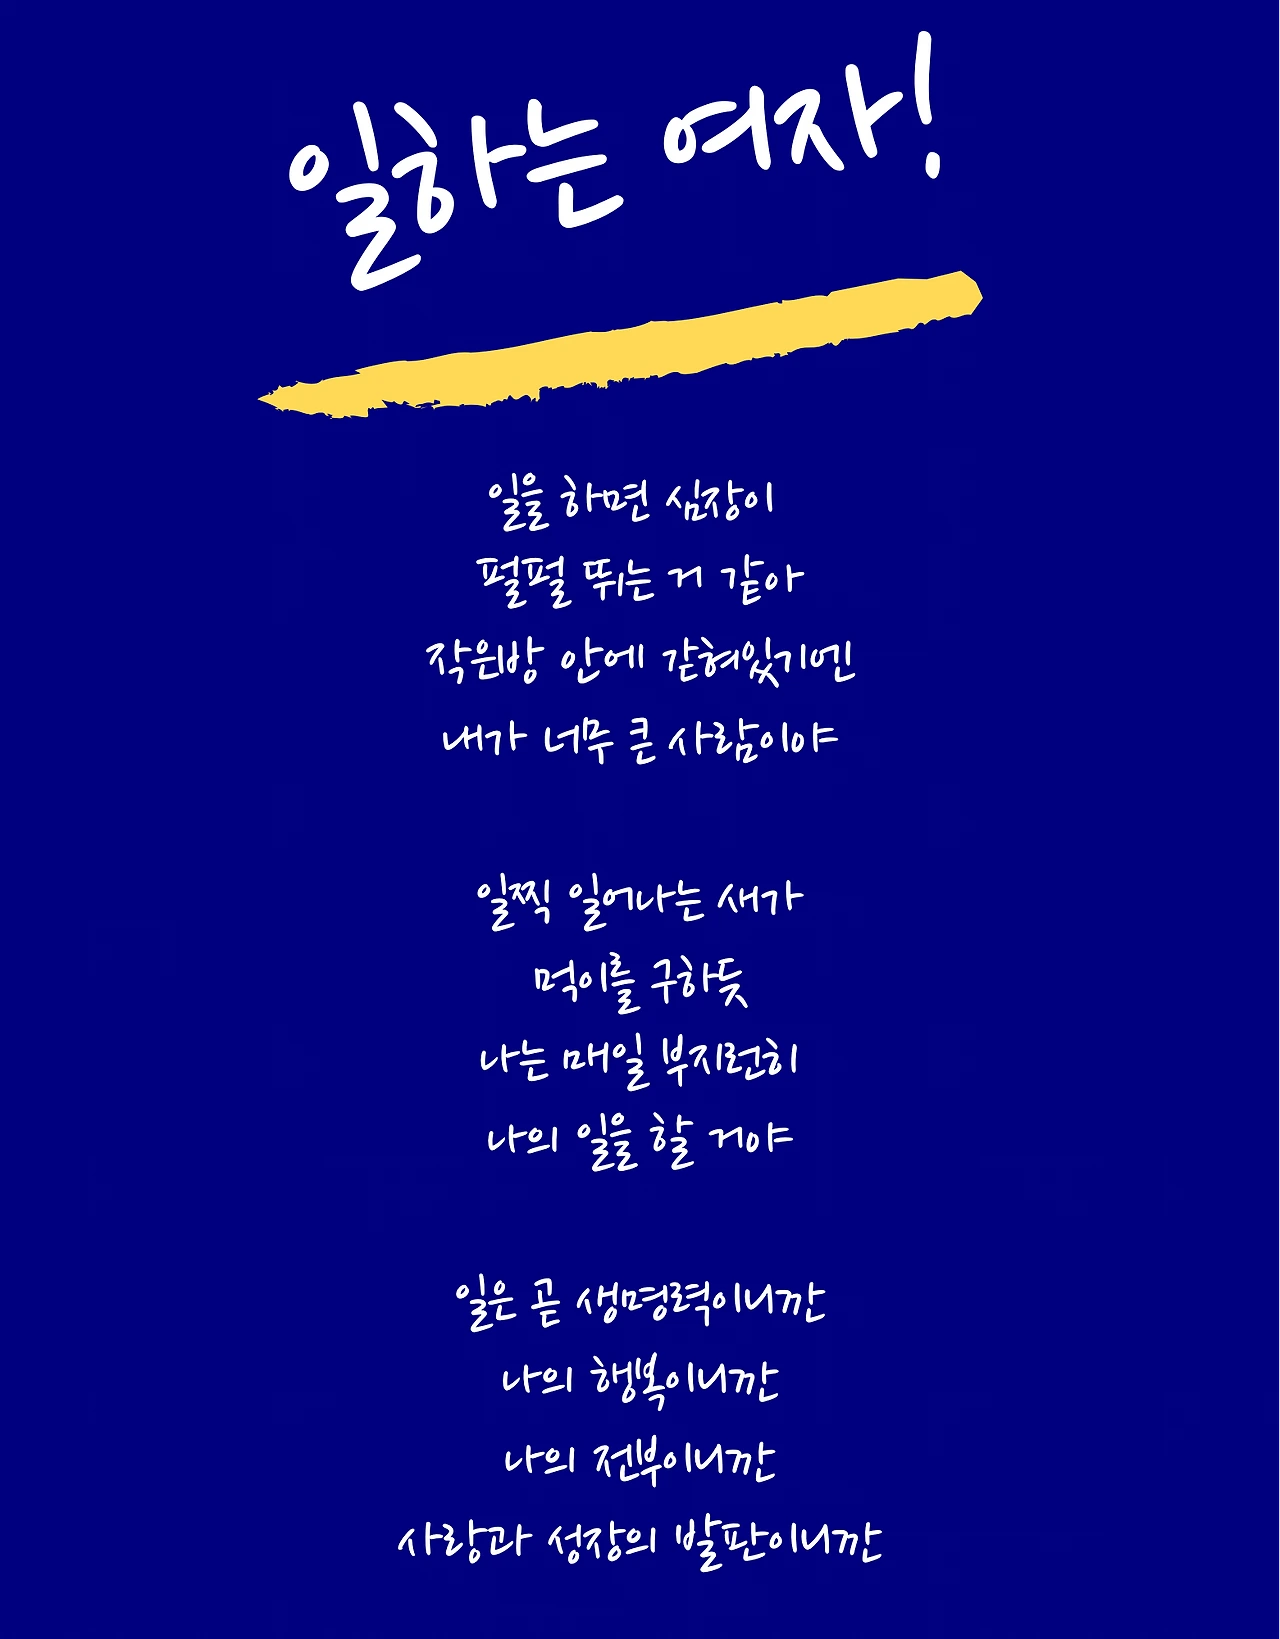 일하는 여자!
일을 하면 심장이
펄펄 뛰는 거 같아
작은방 안에 갇혀있기엔
내가 너무 큰 사람이야
일찍 일어나는 새가
먹이를 구하듯
나는 매일 부지런히
나의 일을 할 거야
일은 곧 생명력이니깐
나의 행복이니깐
나의 전부이니깐
사랑과 성장의 발판이니깐